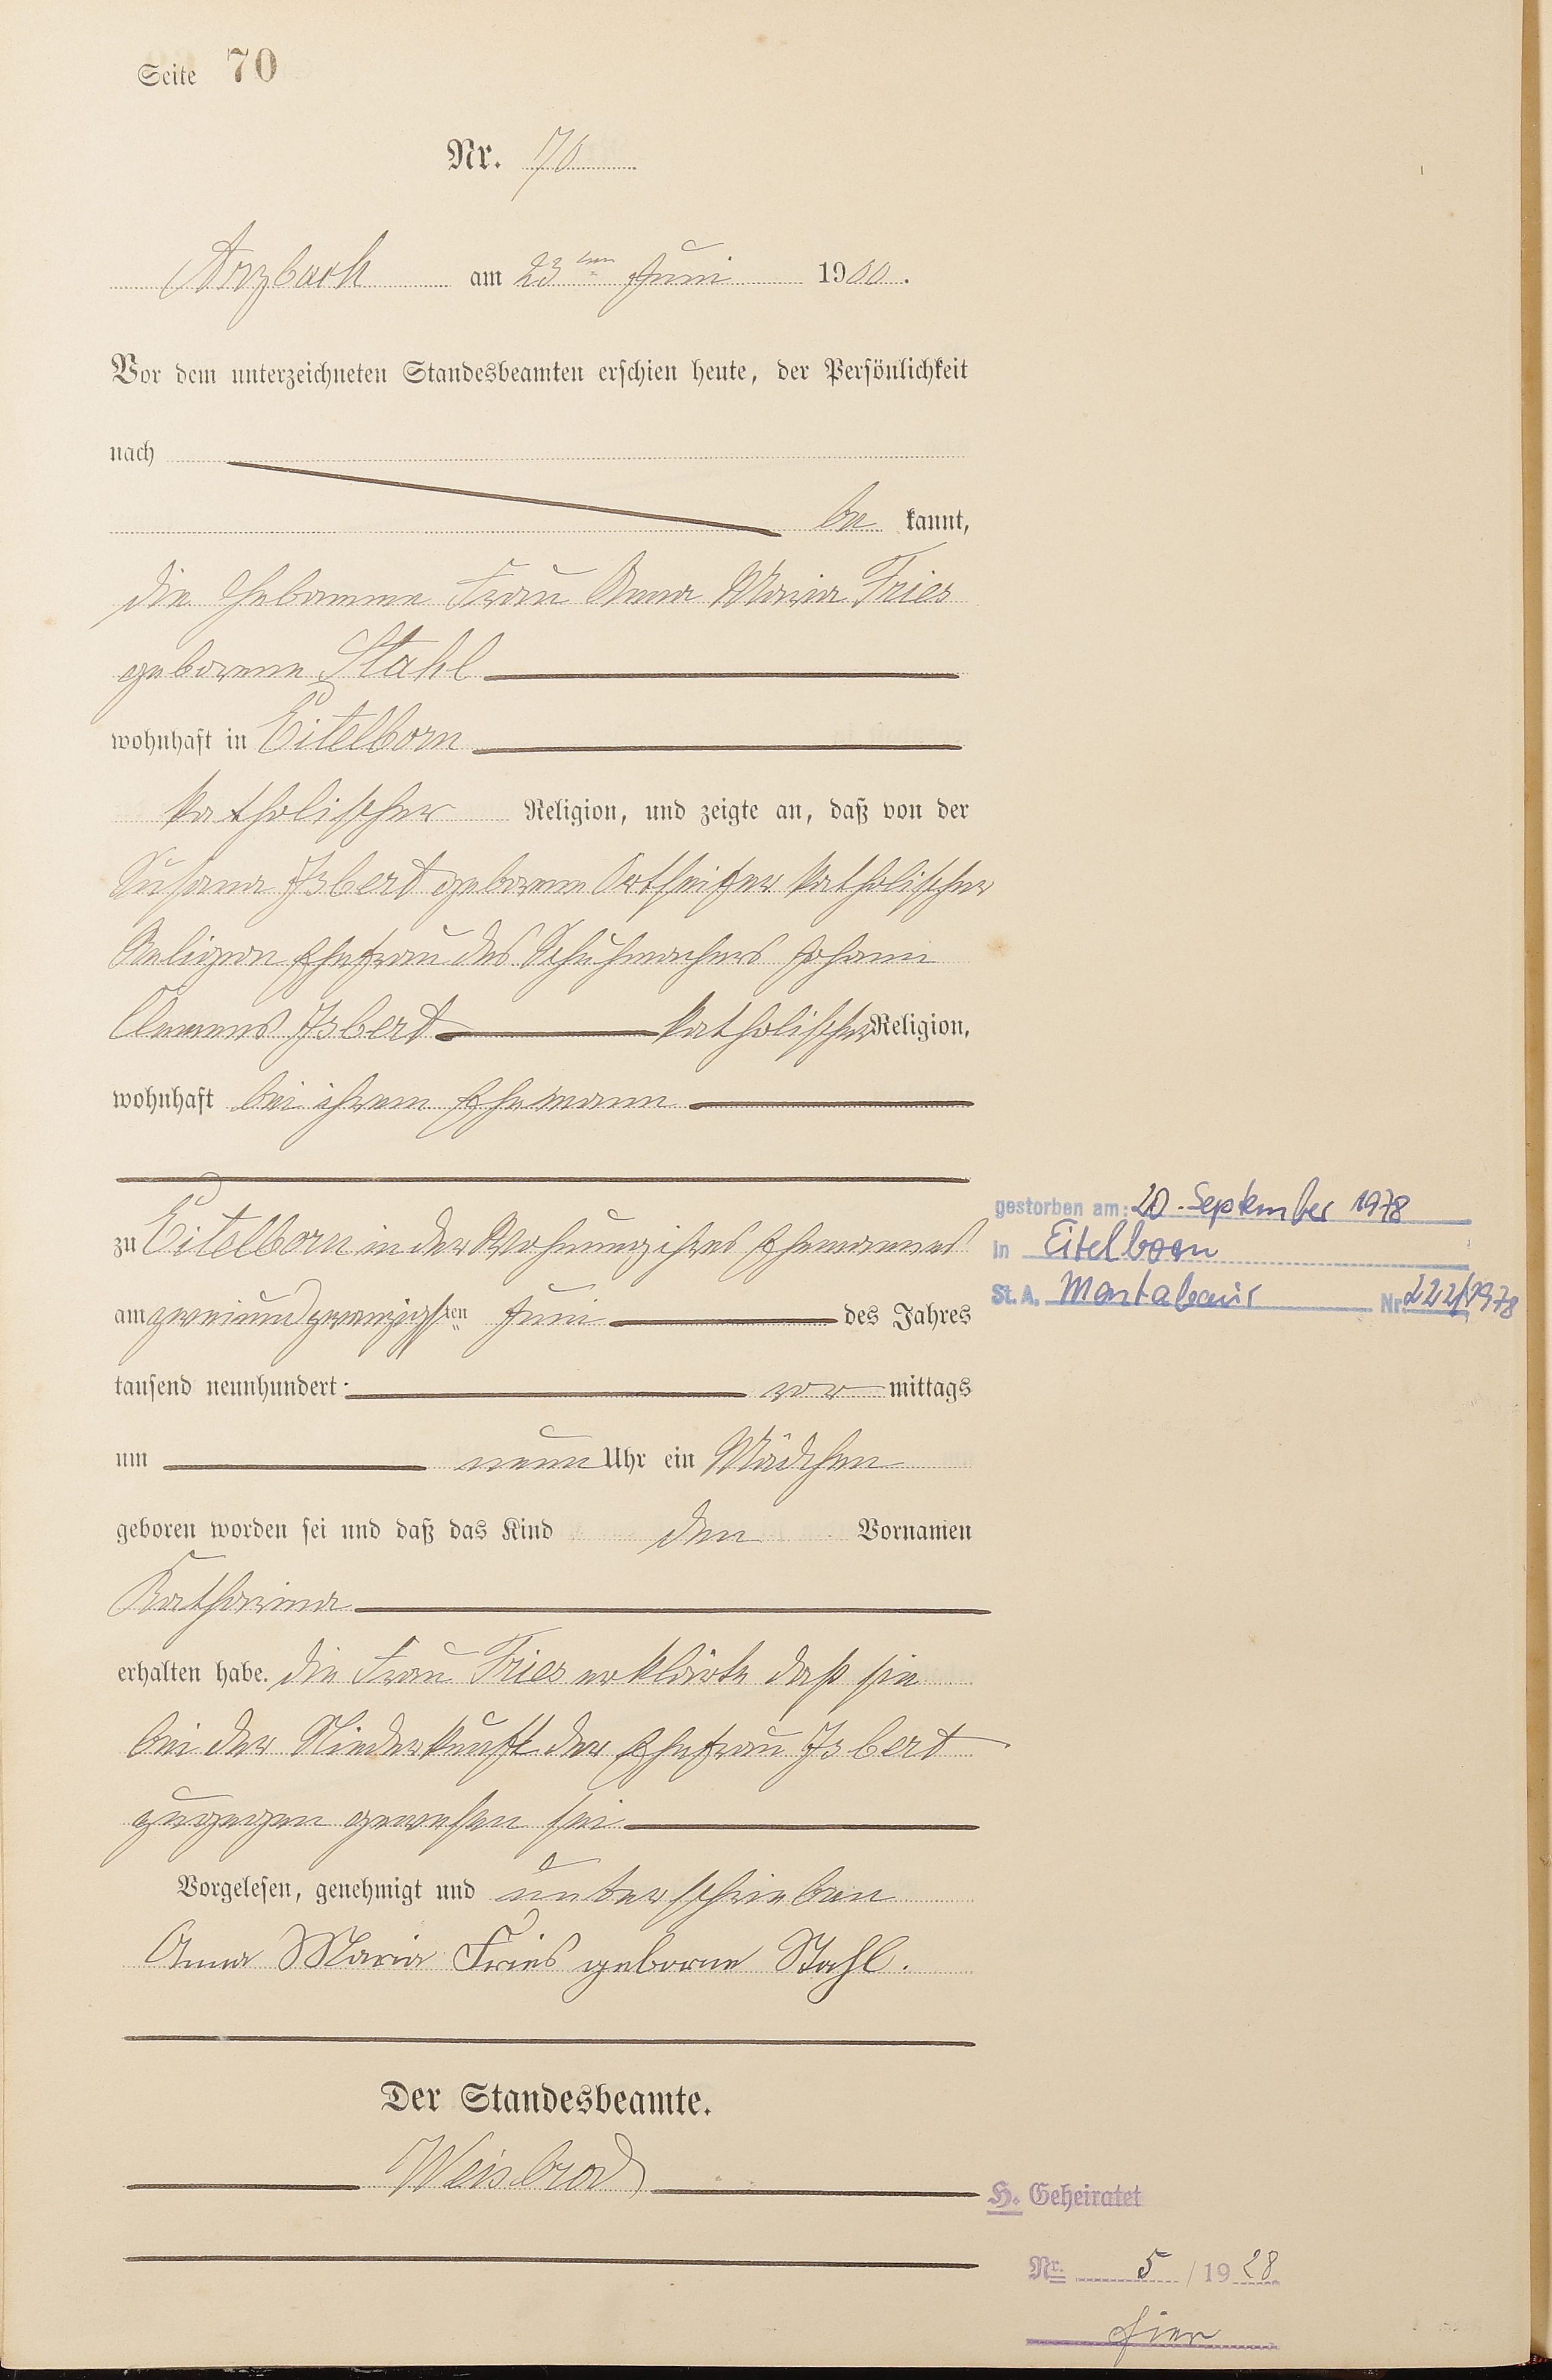 Seite 70
Nr. 70
Arzbach am 23ten Juni 1900.
Vor dem unterzeichneten Standesbeamten erschien heute, der Persönlichkeit
nach
be kannt,
die Hebamme Frau Anna Maria Fries
geborene Stahl
wohnhaft in Eitelborn
katholischer Religion, und zeigte an, daß von der
Susana Isbert geborene katholischer
Religion Ehefrau des Schuhmachers Johann
Clemens Isbert katholischer Religion,
wohnhaft bei ihrem Ehemann
zu Eitelborn in der Wohnung ihres Ehemannes
am zweiundzwanzigsten Juni des Jahres
tausend neunhundert vor mittags
um neun Uhr ein Mädchen
geboren worden sei und daß das Kind den Vornamen
Katharina
erhalten habe. die Frau Fries erklärte daß sie
bei der Niederkunft der Ehefrau Isbert
zugegen gewesen sei
Vorgelesen, genehmigt und unterschrieben
Anna Maria Fries geborne Stahl.
Der Standesbeamte.
Weisbrod
gestorben am: 20. September 1978
in Eitelborn
St. A. Montabaur Nr. 222/1978
H. Geheiratet
Nr. 5 / 19 28
hier